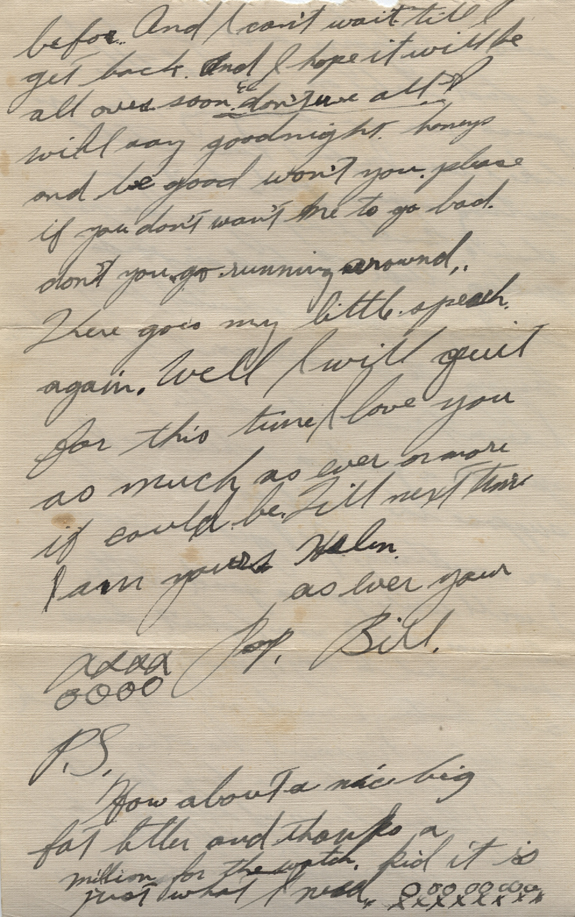 befor. And I can't wait till I
get back. And I hope it will be
all over soon. "don't we all" I
will say goodnight. honey
and be good won't you. please
if you don't want me to go bad.
don't you go running around,.
There goes my little speech.
again. Well I will quit
for this time I love you
as much as ever or more
if could be. Till next time
I am yours Helen.
as ever your
Bill.
xxxx
oooo
P.S.
How about a nice big
fat letter and thanks a
million for the watch, kid it is
just what I need,, ooooooooo
xxxxxxxx